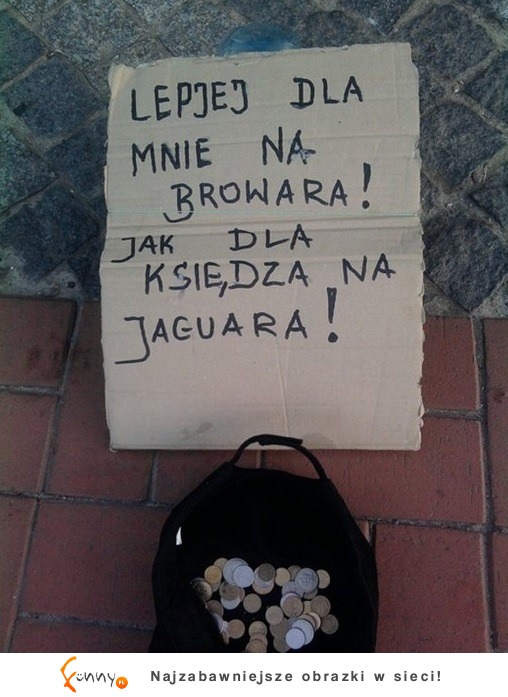 LEPJEJ DLA
MNIE NA
BROWARA!
JAK DLA
KSIĘDZA NA
JAGUARA!
Funny.PL
Najzabawniejsze obrazki w sieci!